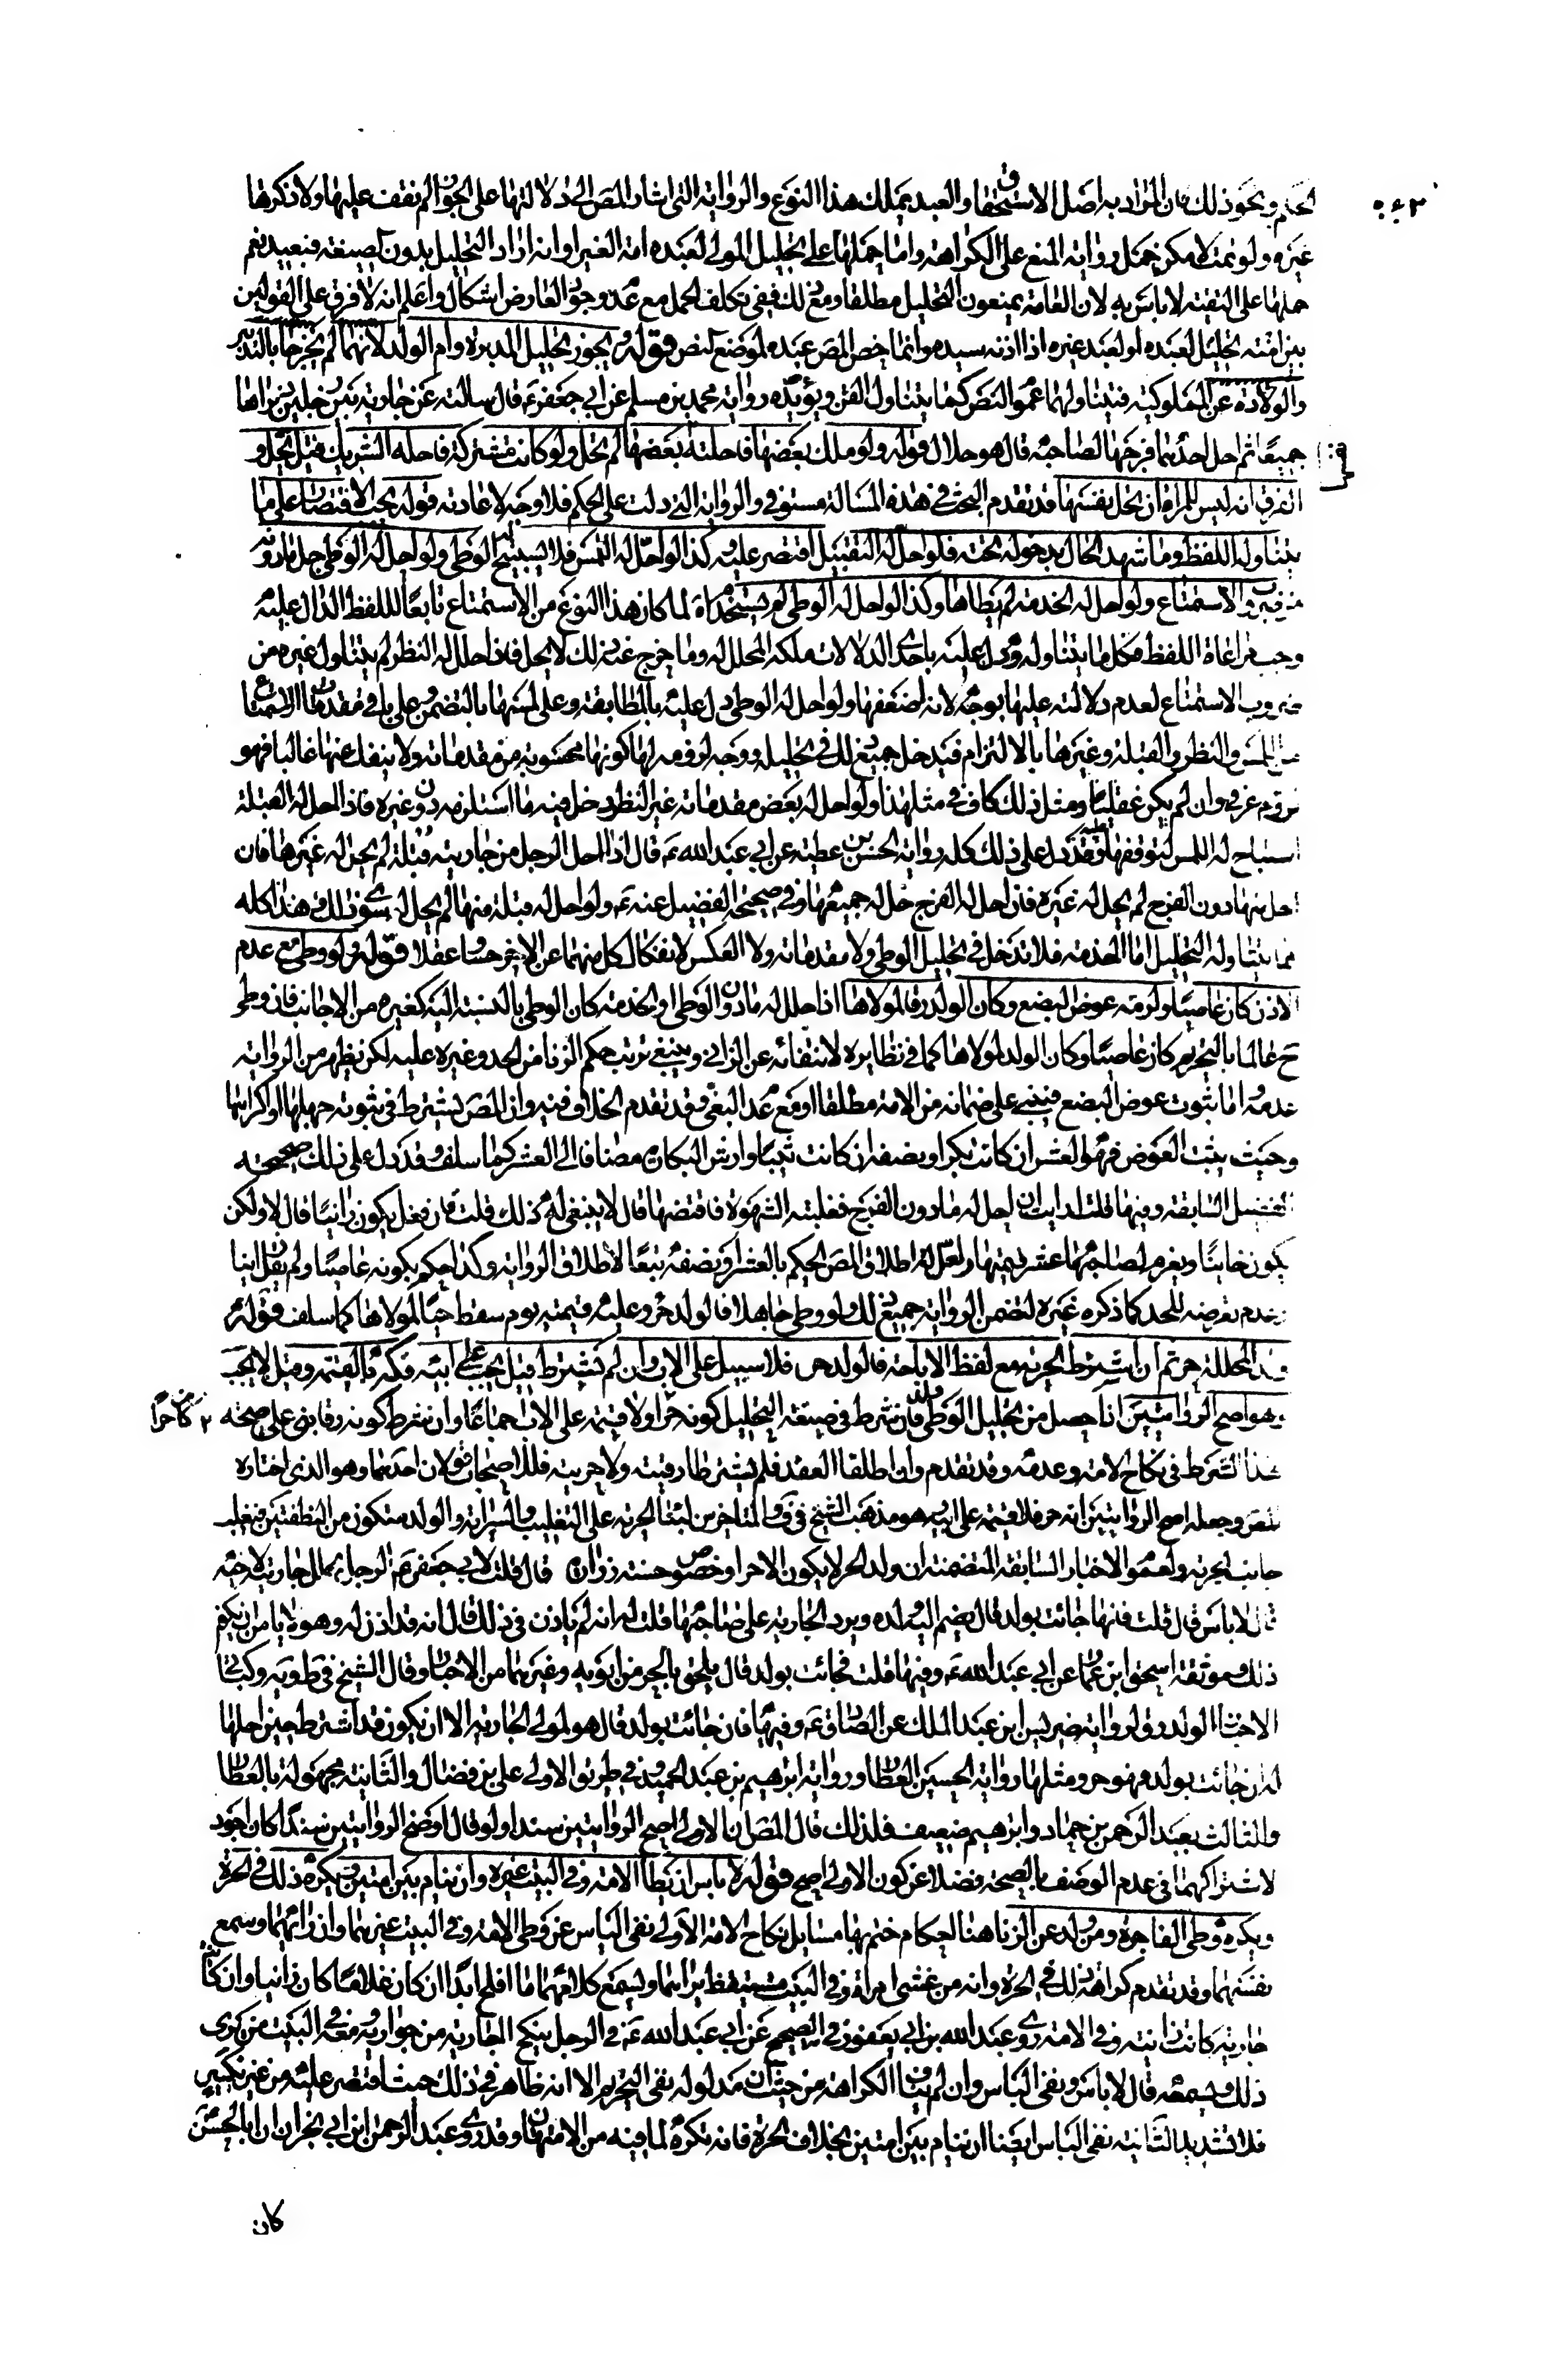 الحكم ونحو ذلك فان المراد به اصل الاستحقاق والعبد يملك هذا النوع والرواية التى اشار المص الى دلالتها على الجواز لم نقف عليها ولا ذكرها
غيره ولو تمت لامكن حمل رواية المنع على الكراهة واما حملها على تحليل المولى لعبده امة الغير او انه اراد التحليل بدون الصيغة فبعيد نعم
حملها على التقية لا باس به لان العامة يمنعون التحليل مطلقا ومع ذلك ففى تكلف الحمل مع عدم وجود المعارض اشكال واعلم انه لا فرق على القولين
بين امته تحليل لعبده او لعبد غيره اذا اذنه سيده وانما خص المص عبده لموضع النص قوله ويجوز تحليل المدبرة وام الولد لانهما لم يخرجا بالتدبير
والولادة عن المملوكية فيتناولهما عموم النص كما يتناول القن ويؤيده رواية محمد بن مسلم عن ابى جعفر ع قال سالته عن جارية بين رجلين دبراها
جميعا ثم احل احدهما فرجها لصاحبه قال هو حلال قوله ولو ملك بعضها فاحلته بعضها لم تحل ولو كانت مشتركة فاحله الشريك قيل تحل و
الفرق انه ليس للمراة ان تحل نفسها قد تقدم البحث فى هذه المسالة مستوفى والرواية التى دلت على الحكم فلا وجه لاعادته قوله يجب الاقتصار على ما
يتناوله اللفظ وما شهد الحال بدخوله تحته فلو احل له التقبيل اقتصر عليه وكذا لو احل له اللمس فلا يستبيح الوطى ولو احل له الوطى حل له ما دونه
من ضروب الاستمتاع ولو احل له الخدمة لم يطاها وكذا لو احل له الوطى لم يستخدم لما كان هذا النوع من الاستمتاع تابعا للفظ الدال عليه
وجب مراعاة اللفظ فكل ما يتناوله ودل عليه باحدى الدلالات ملكه المحلل له وما خرج عن ذلك لا يحل فاذا حلل له النظر لم يتناول غيره من
ضروب الاستمتاع لعدم دلالته عليها بوجه لانه اضعفها ولو احل له الوطى دل عليه بالمطابقة وعلى لمسها بالتضمن وعلى باقى مقدمات الاستمتاع
من اللمس والنظر والقبلة وغيرها بالالتزام فيدخل جميع ذلك فى تحليله ووجه لزومه لها كونها محسوبة من مقدماته ولا ينفك عنها غالبا فهو
لزوم عرفى وان لم يكن عقليا ومثل ذلك كاف فى مثل هذا ولو احل له بعض مقدماته غير النظر دخل فيه ما استلزمه دون غيره فاذا احل له القبلة
استباح له اللمس لتوقفها عليه وقد دل على ذلك كله رواية الحسن بن عطية عن ابى عبد الله ع قال اذا احل الرجل من جاريته قبلة لم يحل له غيرها فان
احل منها دون الفرج لم يحل له غيره فان احل له الفرج حل له جميعها وفى صحيحة الفضيل عنه ع ولو احل له قبلة منها لم يحل له سوى ذلك وهذا كله
فيما يتناوله التحليل اما الخدمة فلا تدخل فى تحليل الوطى ولا مقدماته ولا العكس لانفكاك كل منهما عن الاخر حسا وعقلا قوله ولو وطى مع عدم
الاذن كان عاصيا ولزمه عوض البضع وكان الولد رقا لمولاها اذا حلل له مادون الوطى او الخدمة كان الوطى بالنسبة اليه كغيره من الاجانب فان وطى
ح عالما بالتحريم كان عاصيا وكان الولد لمولاها كما فى نظايره لانتفائه عن الزانى وينبغى ترتب حكم الزنا من الحد وغيره عليه لكن يظهر من الرواية
عدمه اما ثبوت عوض البضع فيبنى على ضمانه من الامة مطلقا او مع عدم البغى وقد تقدم الخلاف فيه وان المص يشترط فى ثبوته جهلها او اكراهها
وحيث يثبت العوض فهو العشر ان كانت بكرا ونصفه ان كانت ثيبا وارش البكارة مضافا الى العشر كما سلف وقد دل على ذلك صحيحة
الفضيل السابقة وفيها قلت ارايت ان احل له ما دون الفرج فغلبته الشهوة فافتضها قال لا ينبغى له ذلك قلت فان فعل يكون زانيا قال لا ولكن
يكون خائنا ويغرم لصاحبها عشر قيمتها ولعل اطلاق المص الحكم بالعشر او نصفه تبعا لاطلاق الرواية وكذا حكمه بكونه عاصيا ولم يقل زانيا
وعدم تعرضه للحد كما ذكره غيره لتضمن الرواية جميع ذلك ولو وطى جاهلا فالولد حر وعليه قيمته يوم سقط حيا لمولاها كما سلف قوله
ولد المحللة حر ثم ان اشترط الحرية مع لفظ الاباحة فالولد حر فلا سبيل على الاب وان لم يشترط قيل يجب على ابيه فكه بالقيمة وقيل لا يجب
وهو اصح الروايتين اذا حصل من تحليل الوطى ولد فان شرط فى صيغة التحليل كونه حرا ولا قيمة على الاب اجماعا وان شرط كونه رقا بنى على صحة
كان حرا
هذا الشرط فى نكاح الامة وعدمه وقد تقدم وان اطلقا العقد فلم يشترطا رقيته ولا حريته فللاصحاب قولان احدهما وهو الذى اختاره
المص وجعله اصح الروايتين انه حر فلا قيمة على ابيه وهو مذهب الشيخ فى ف والمتاخرين لبناء الحرية على التغليب والسراية والولد متكون من النطفتين فيغلب
جانب الحرية ولعموم الاخبار السابقة المتضمنة ان ولد الحر لا يكون الا حرا وخصوص حسنة زرارة قال قلت لابى جعفر ع الرجل يحلل جاريته لاخيه
قال لا باس قال قلت فانها جائت بولد قال يضم اليه ولده ويرد الجارية على صاحبها قلت له انه لم ياذن فى ذلك قال انه قد اذن له وهو لا يامن ان يكون
ذلك وموثقة اسحق ابن عمار عن ابى عبد الله ع وفيها قلت فجائت بولد قال يلحق بالحر من ابويه وغيرهما من الاخبار وقال الشيخ فى ط ويه وكتابى
الاخبار الولد رق لرواية ضريس ابن عبد الملك عن الصادق ع وفيها فان جائت بولد قال هو لمولى الجارية الا ان يكون قد اشترط حين احلها
له ان جائت بولد فهو حر ومثلها رواية الحسين العطار ورواية ابرهيم بن عبد الحميد وفى طريق الاولى على بن فضال والثانية مجهولة بالعطار
والثالث بعبد الرحمن بن حماد وابرهيم ضعيف فلذلك قال المص ان الاولى اصح الروايتين سندا ولو قال اوضح الروايتين سندا كان اجود
لاشتراكهما فى عدم الوصف بالصحة فضلا عن كون الاولى اصح قوله لا باس ان يطا الامة وفى البيت غيره وان ينام بين امتين ويكره ذلك فى الحرة
ويكره وطى الفاجرة ومن ولد عن الزنا هنا احكام ختم بها مسايل نكاح الاماء الاولى نفى الباس عن وطى الامة وفى البيت غيرهما وان رائهما وسمع
نفسهما وقد تقدم كراهة ذلك فى الحرة وانه من غشى امراة وفى البيت مستيقظ يراهما ويسمع كلامهما ما افلح ابدا ان كان غلاما كان زانيا وان كانت
جارية كانت زانية وفى الامة روى عبد الله بن ابى يعفور فى الصحيح عن ابى عبد الله ع فى الرجل ينكح الجارية من جواريه ومعه فى البيت من يرى
ذلك ويسمعه قال لا باس ونفى الباس وان لم يناف الكراهة من حيث ان مدلوله نفى التحريم الا انه ظاهر فى ذلك حيث اقتصر عليه من غير نكير
فلا تشديد الثانية نفى الباس ايضا ان ينام بين امتين بخلاف الحرة فانه تكره لما فيه من الامتهان وقد روى عبد الرحمن ابن ابى نجران ان ابا الحسن
كان